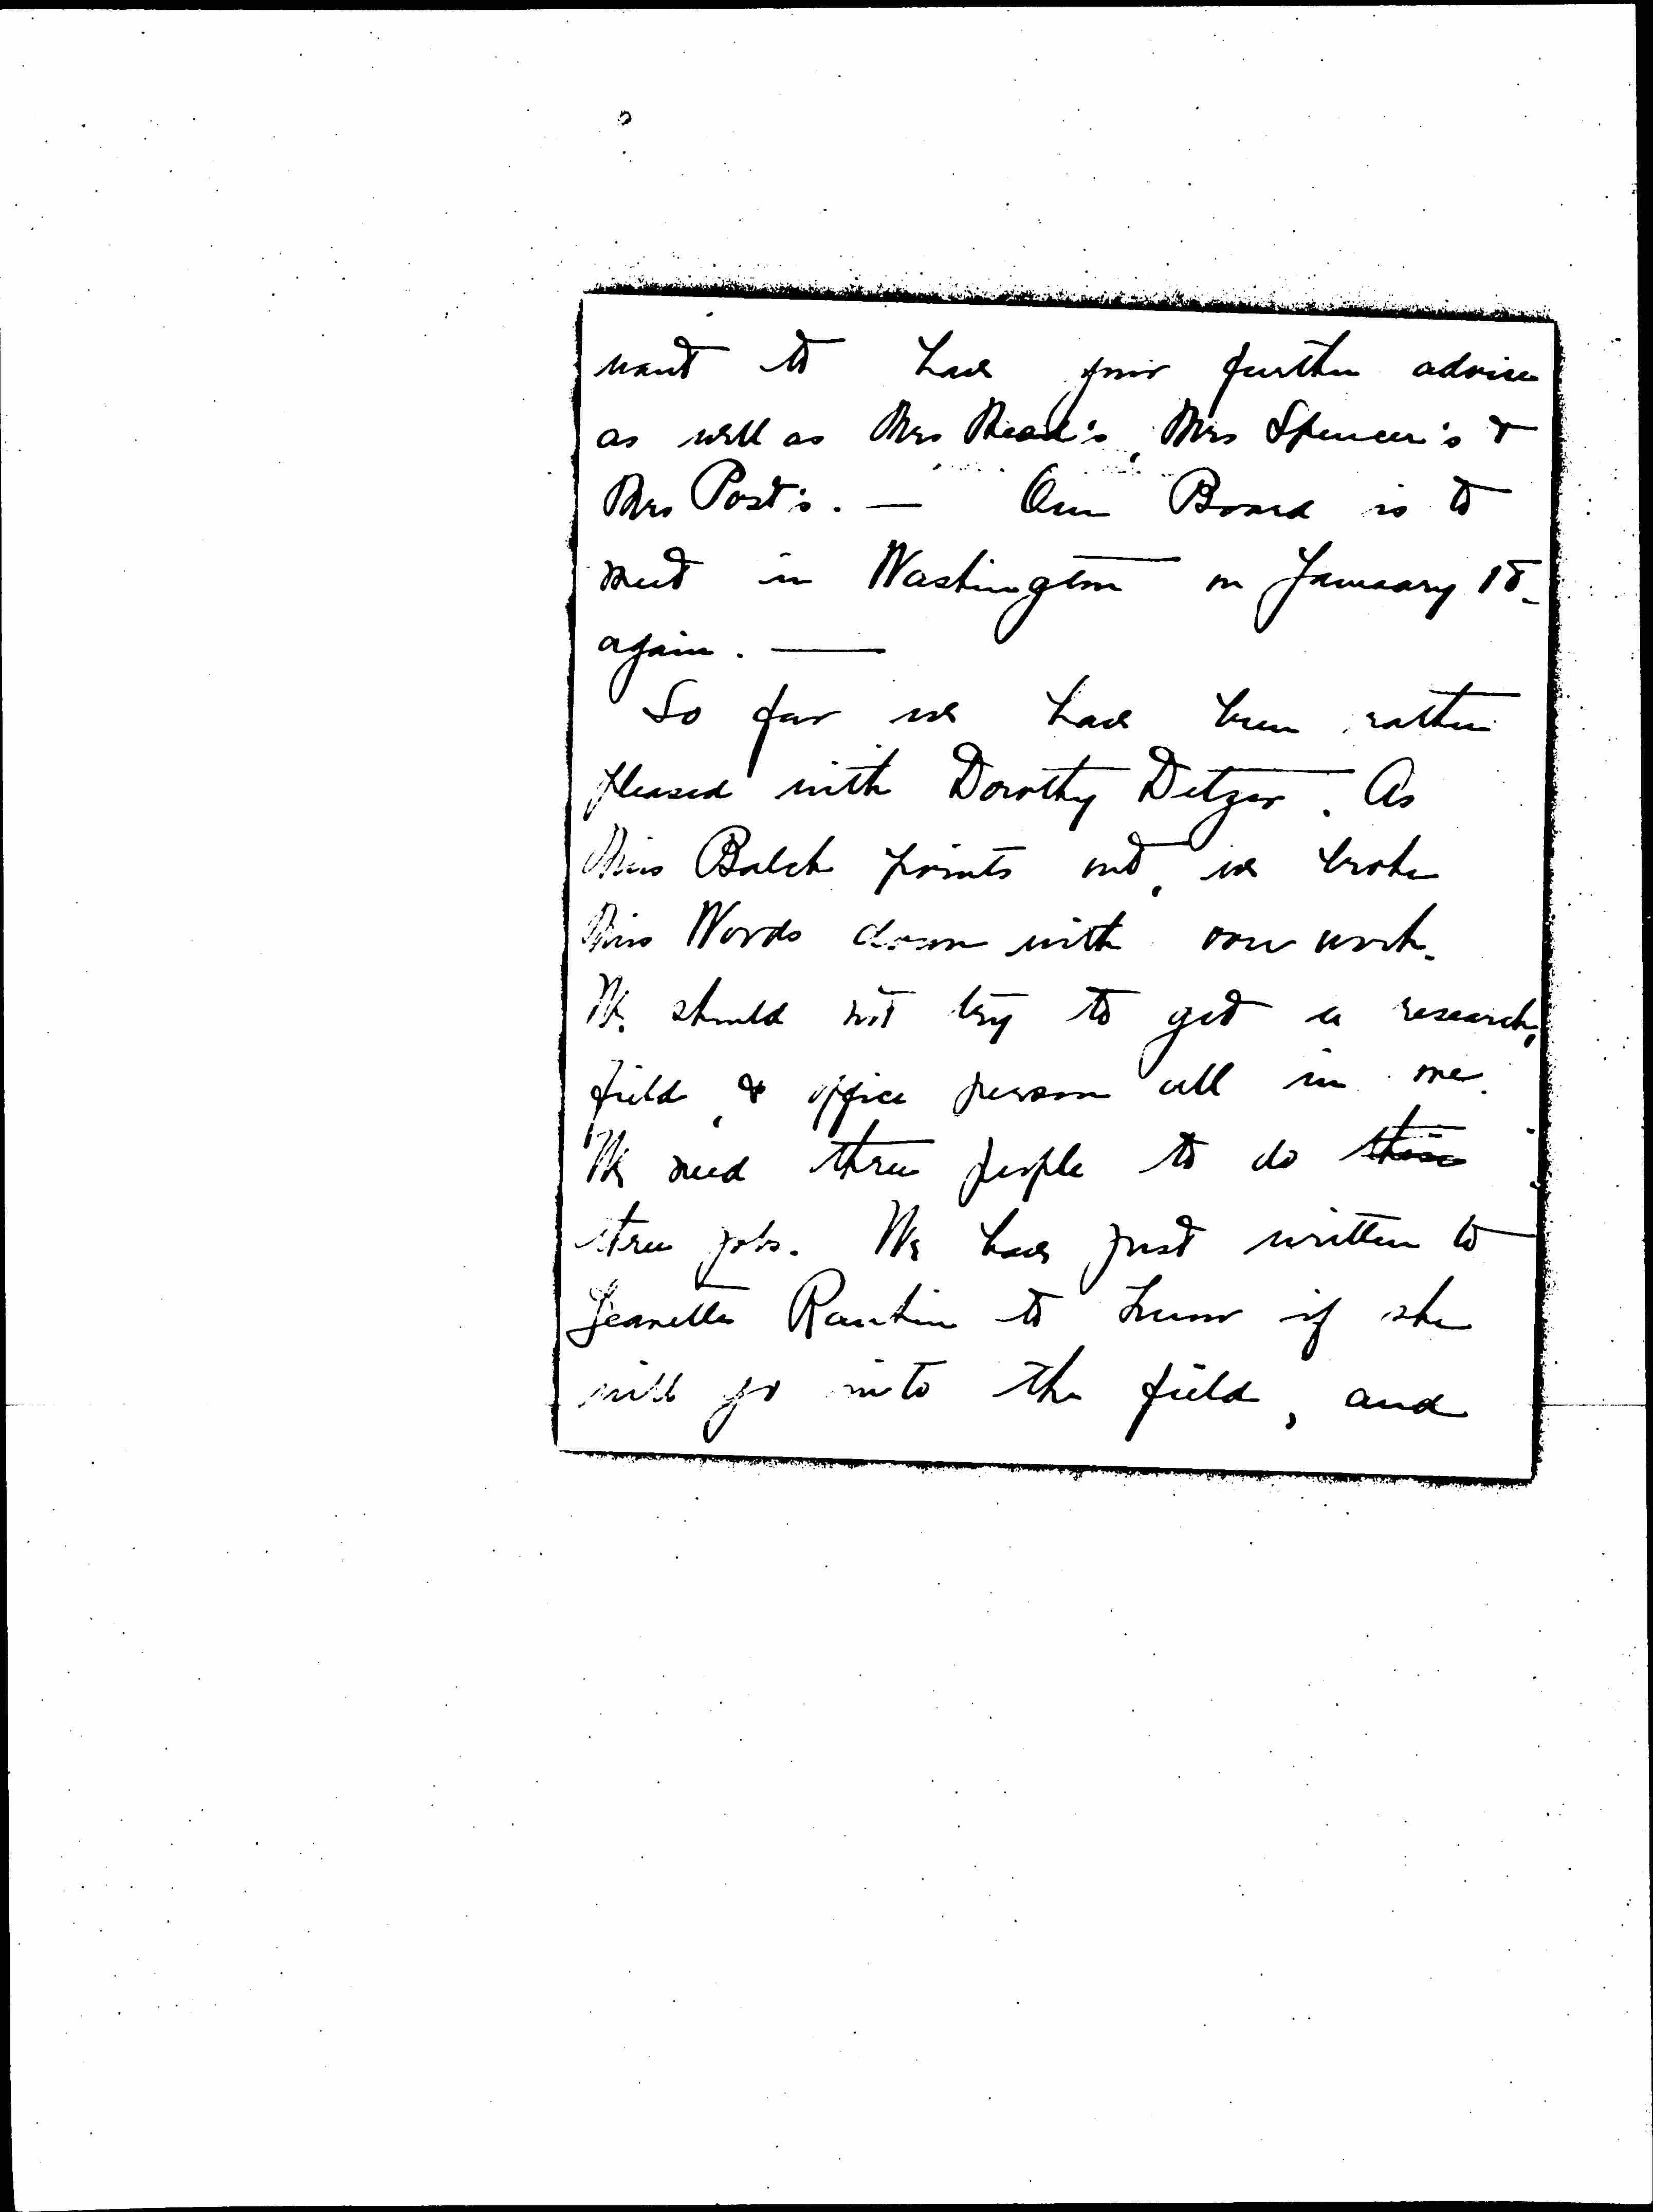 want to have your further advice
as well as Mrs Mead's, Mrs Spencer's &
Mrs Post's. — Our Board is to
meet in Washington on January 18_
again. —
So far we have been rather
pleased with Dorothy Detzer. As
Miss Balch points out, we broke
Miss Woods down with our work.
We should not try to get a research,
field, & office person all in one.
We need three people to do these
three jobs. We have just written to
Jeanette Rankin to know if she
will go into the field, and